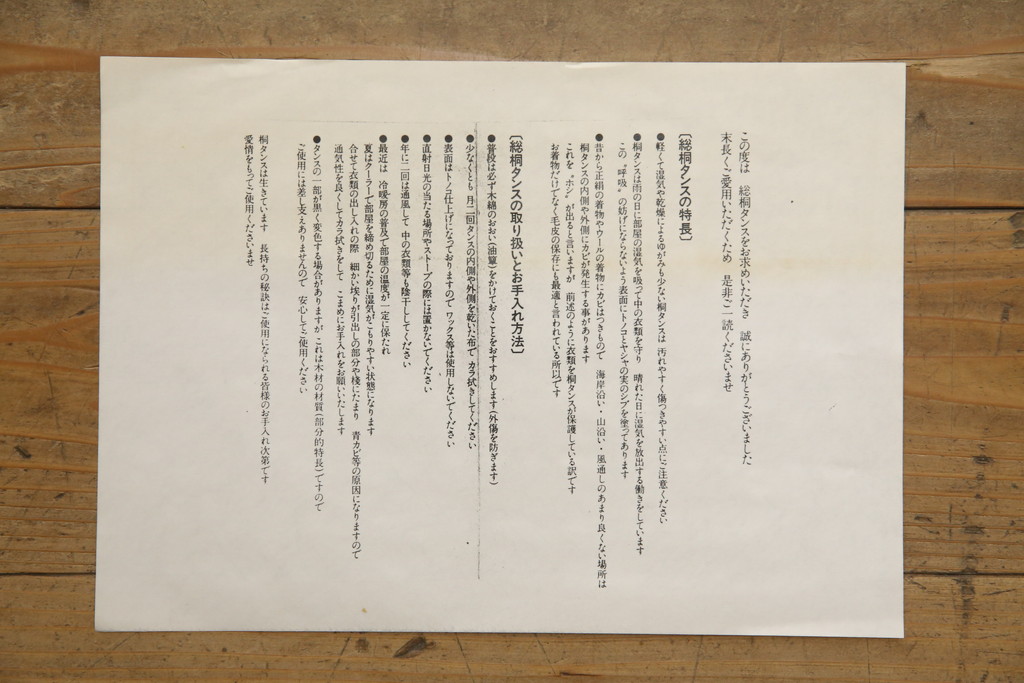 この度は 総桐タンスをお求めいただき 誠にありがとうございました
末長くご愛用いただくため 是非ご一読くださいませ
〔総桐タンスの特長〕
●軽くて湿気や乾燥によるゆがみも少ない桐タンスは 汚れやすく傷つきやすい点にご注意ください
●桐タンスは雨の日に部屋の湿気を吸って中の衣類を守り 晴れた日に湿気を放出する働きをしています
この〝呼吸〟の妨げにならないよう表面にトノコとヤシャの実のシブを塗ってあります
●昔から正絹の着物やウールの着物にカビはつきもので 海岸沿い・山沿い・風通しのあまり良くない場所は
桐タンスの内側や外側にカビが発生する事があります
これを〝ホシ〟が出ると言いますが 前述のように衣類を桐タンスが保護している訳です
お着物だけでなく毛皮の保存にも最適と言われている所以です
〔総桐タンスの取り扱いとお手入れ方法〕
●普段は必ず木綿のおおい(油箪)をかけておくことをおすすめします(外傷を防ぎます)
●少なくとも 月二回タンスの内側や外側を乾いた布で カラ拭きしてください
●表面はトノコ仕上げになっておりますので ワックス等は使用しないでください
●直射日光の当たる場所やストーブの際には置かないでください
●年に二回は通風して 中の衣類等も陰干ししてください
●最近は 冷暖房の普及で部屋の温度が一定に保たれ
夏はクーラーで部屋を締め切るために湿気がこもりやすい状態になります
合せて衣類の出し入れの際 細かい埃りが引出しの部分や棧にたまり 青カビ等の原因になりますので
通気性を良くしてカラ拭きをして こまめにお手入れをお願いいたします
●タンスの一部が黒く変色する場合がありますが これは木材の材質(部分的特長)ですので
ご使用には差し支えありませんので 安心してご使用ください
桐タンスは生きています 長持ちの秘訣はご使用になられる皆様のお手入れ次第です
愛情をもってご使用くださいませ